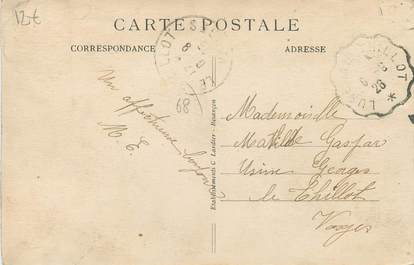 12€
CARTE POSTALE
CORRESPONDANCE
ADRESSE
LLOT
8
68
LLOT
8
26
*
Un affectueux bonjour
M. C.
Etablissements C. Lardier - Besançon
Mademoiselle
Mathilde Gaspar
Usine Georges
le Thillot
Vosges